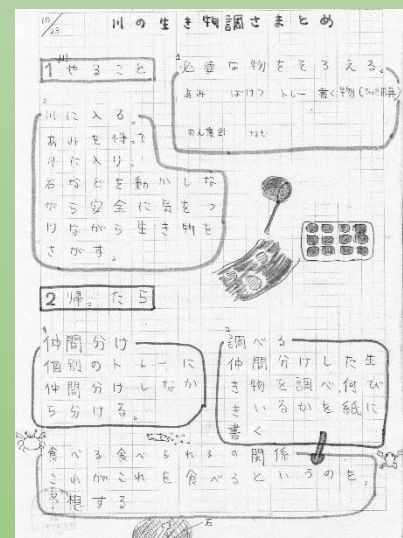 10/23
川の生き物調さまとめ
1 やること
1
必要な物をそろえる。
あみ ばけつ トレー 書く物
おん度計 など
2
川に入る。
あみを持って
川に入り、
石などを動かしな
がら安全に気をつ
けながら生き物を
さがす。
2 帰ったら
1
仲間分け
個別のトレーに
仲間分けしなが
ら分ける。
2
調べる
仲間分けした生
き物を調べ何び
きいるかを紙に
書く
3
食べる食べられるの関係
これがこれを食べるというのを、
予想する
石